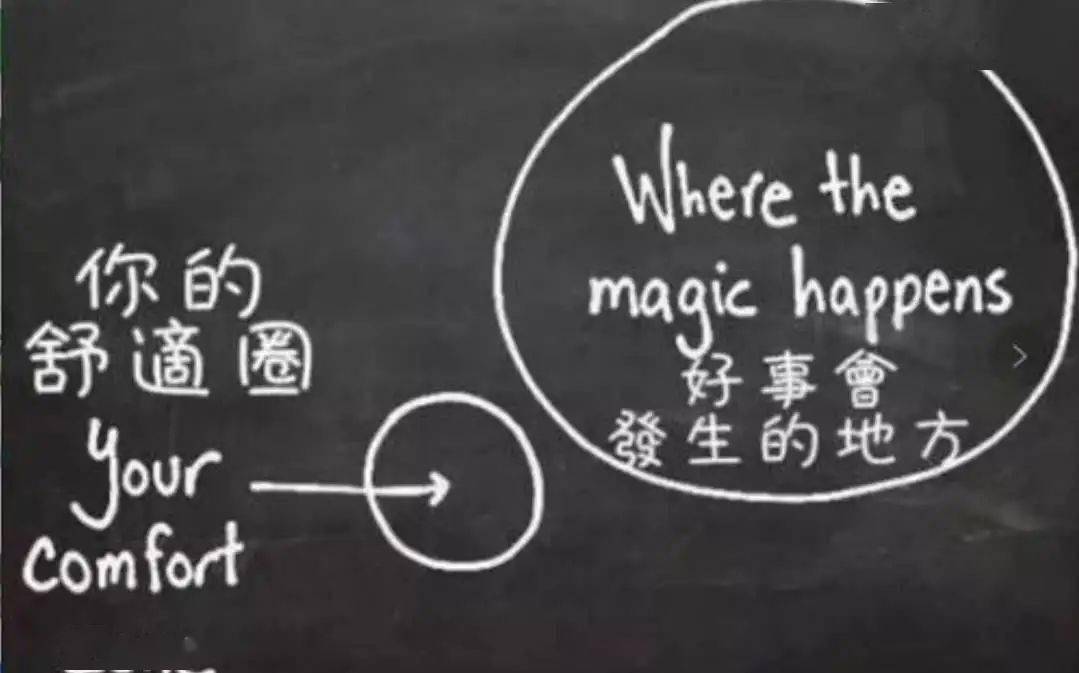 你的
舒適圈
your
comfort
Where the
magic happens
好事會
發生的地方